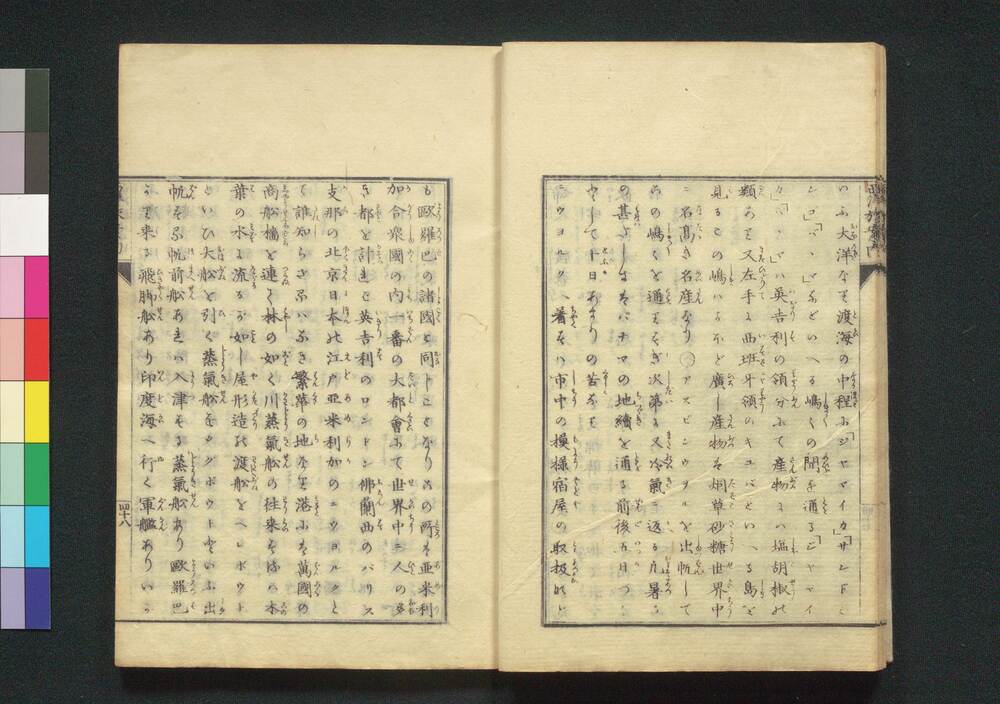 いふ大洋なり渡海の中程ふ「ジヤマイカ」「サンドミ
ンゴ」などいへる嶋々の間を通る「ジヤマイ
カ」ハ英吉利の領分ふて産物ハ塩胡椒の
類あり又左手ふ西班牙領のキユバといへる島を
見るこの嶋ハよほど廣し産物ハ烟草砂糖世界中
ニ名高き名産なり アスピンウヲルを出帆して
の嶋々を通りすぎ次第ニ又冷氣ニ返る尤暑さ
の甚だしきはパナマの地續を通る前後五日
十日あまりの苦なり
ニウヨルクヘ着すれハ市中の模様宿屋の取扱の
も歐羅巴の諸國と同じことなり此所ハ亜米利
加合衆國の内一番の大都會ふて世界中ニ人の多
き都を計れば英吉利のロンドン佛蘭西のパリス
支那の北京日本の江戸亜米利加のニウヨルクと
て誰知らざるハなき繁華の地なり港ふハ萬國の
商舩檣を連ねて林の如く川蒸氣舩の往来するハ木
葉の水ニ流るゝ如し屋形造の渡舩をヘレボウト
といひ大舩を引く蒸氣舩をタグボウトといふ出
帆する帆前舩あれハ入津する蒸氣舩あり歐羅巴
より来る飛脚舩あり印度海へ行く軍艦ありいつ
四十八